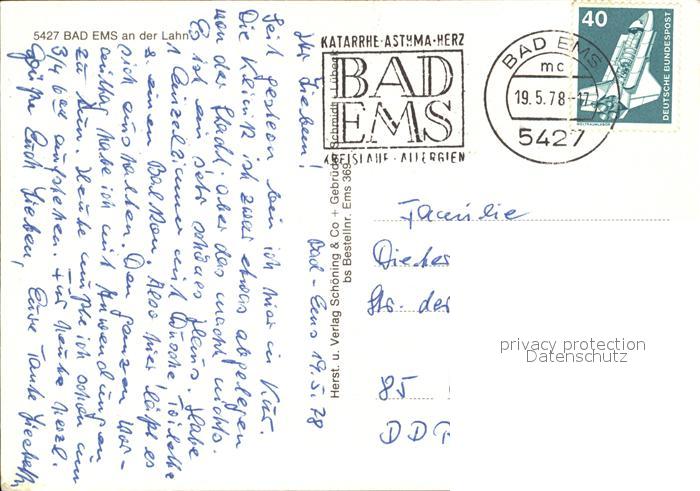 5427 BAD EMS an der Lahn
KATARRHE·ASTHMA·HERZ
BAD
EMS
KREISLAUF·ALLERGIEN
BAD EMS
mc
19.5.78-17
5427
40
DEUTSCHE BUNDESPOST
WELTRAUMLABOR
Herst. u. Verlag Schöning & Co + Gebrüder Schmidt Lübeck
bs Bestellnr. Ems 369
Bad-Ems 19.5.78
Ihr Lieben!
Seit gestern bin ich hier in Kur.
Die Klinik ist zwar etwas abgelegen
von der Stadt, aber das macht nichts.
Es ist ein sehr schönes Haus. Habe
1 Einzelzimmer mit Dusche, Toilette
u. einen Balkon. Also hier läßt es
sich aushalten. Den ganzen Vor-
mittag habe ich mit Anwendungen
zu tun. Heute mußte ich schon um
3/4 6 aufstehen. Für heute herzl.
Grüße Euch Lieben, Eure Tante
Familie
Dieter
Str. der
85
DDR
privacy protection
Datenschutz